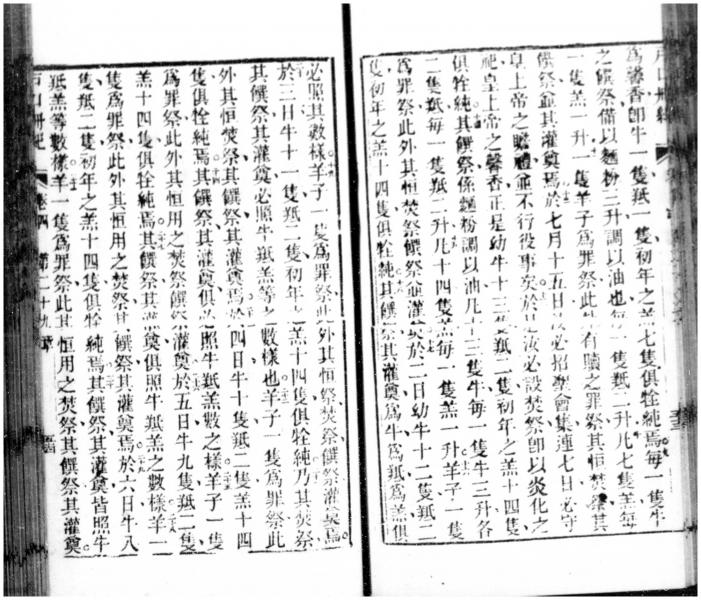 戶口冊紀
爲馨香卽牛一隻羝一隻初年之羔七隻俱牷純焉每一隻牛
之饌祭備以麵粉三升調以油也每一隻羝二升凡七隻羔每
一隻羔一升一隻羊子爲罪祭此外有贖之罪祭其恒焚祭其
饌祭並其灌奠焉於七月十五日汝必招聖會集連七日必守
皇上帝之瞻禮並不行役事矣於是汝必設焚祭卽以炎化之
祀皇上帝之馨香正是幼牛十三隻羝二隻初年之羔十四隻
俱牷純其饌祭係麵粉調以油凡十三隻牛每一隻牛三升各
二隻羝每一隻羝二升凡十四隻羔每一隻羔一升羊子一隻
爲罪祭此外其恒焚祭饌祭並灌奠於二日幼牛十二隻羝二
隻初年之羔十四隻俱牷純其饌祭其灌奠爲牛爲羝爲羔俱
必照其數樣羊子一隻爲罪祭此外其恒祭焚祭饌祭灌奠焉
於三日牛十一隻羝二隻初年之羔十四隻俱牷純乃其焚祭
其饌祭其灌奠必照牛羝羔等之數樣也羊子一隻爲罪祭此
外其恒焚祭其饌祭其灌奠焉於四日牛十隻羝二隻羔十四
隻俱牷純焉其饌祭其灌奠俱必照牛羝羔數之樣羊子一隻
爲罪祭此外其恒用之焚祭饌祭灌奠於五日牛九隻羝二隻
羔十四隻俱牷純焉其饌祭其灌奠俱照牛羝羔之數樣羊一
隻爲罪祭此外其恒用之焚祭其饌祭其灌奠焉於六日牛八
隻羝二隻初年之羔十四隻俱牷純焉其饌祭其灌奠皆照牛
羝羔等數樣羊一隻爲罪祭此其恒用之焚祭其饌祭其灌奠
戶口冊紀 卷四 第二十九章